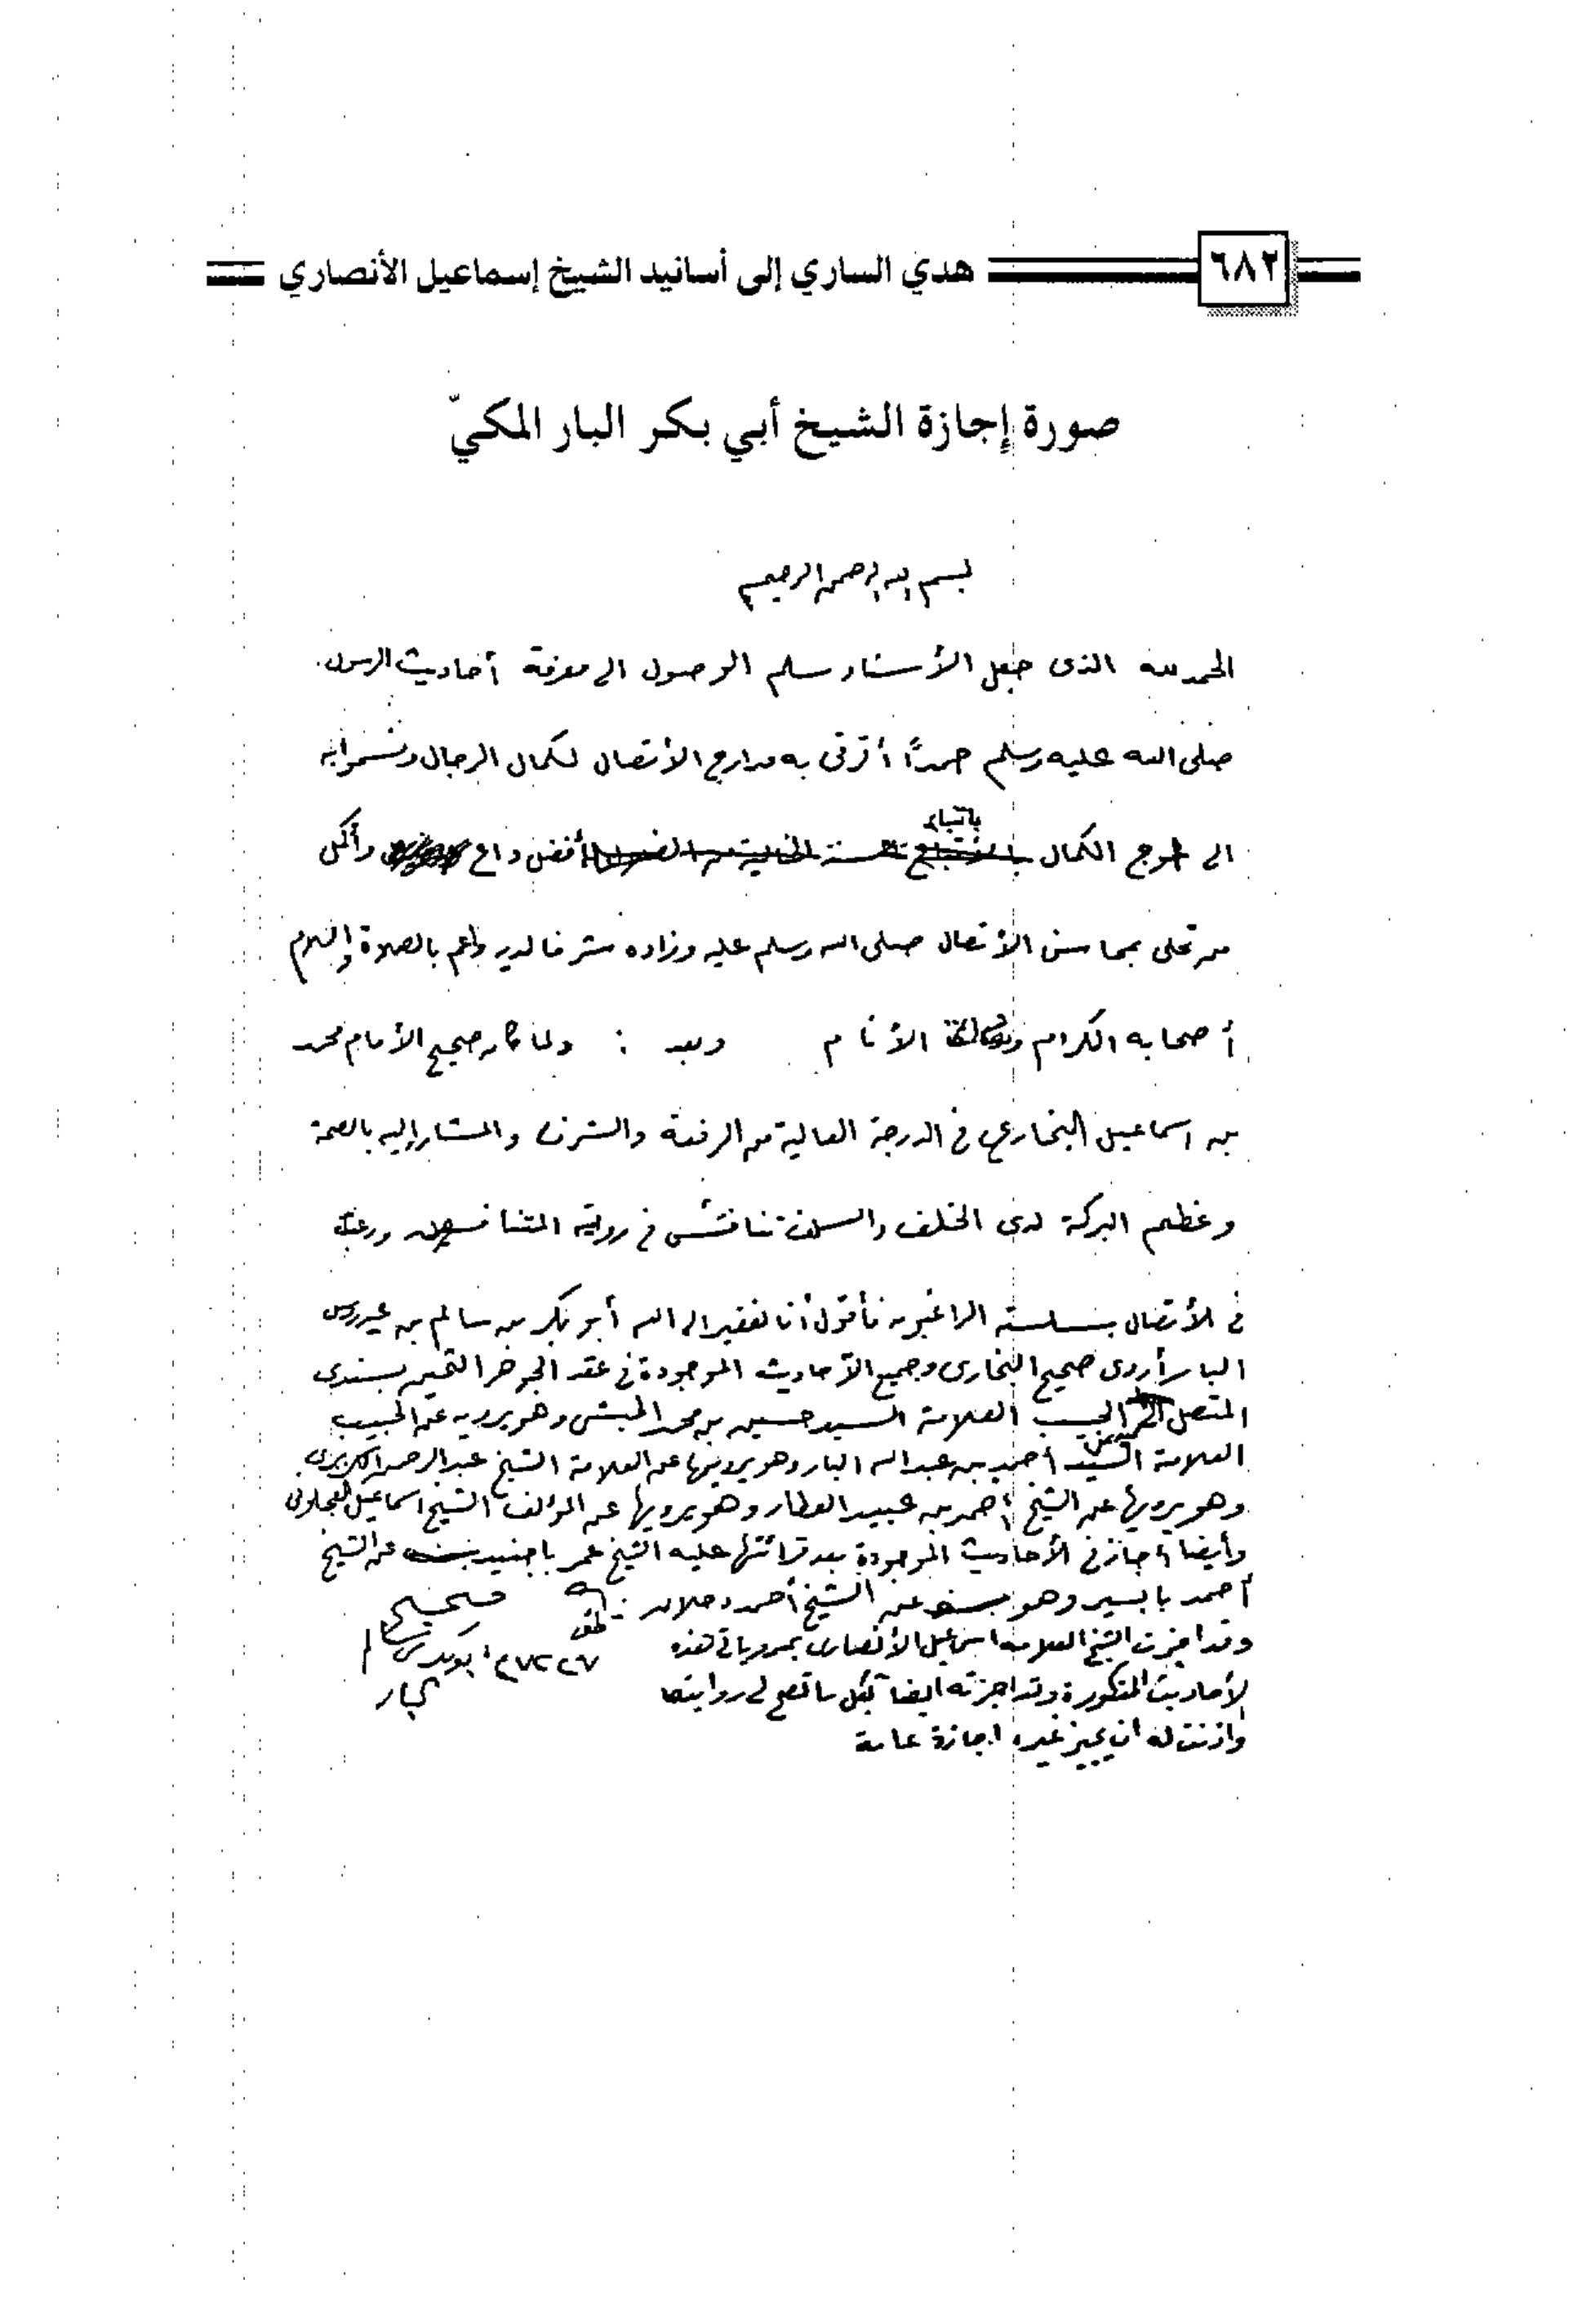 ٦٨٢
هدي الساري إلى أسانيد الشيخ إسماعيل الأنصاري
صورة إجازة الشيخ أبي بكر البار المكيّ
بسم الله الرحمن الرحيم
الحمد لله الذى جعل الأسناد سلم الوصول الى معرفة أحاديث الرسول
صلى الله عليه وسلم حمدًا أترقى به مدارج الأتصال لكمال الرجال
الى الكمال باتباع أفضل داع وأكمل
من تحلى بمحاسن صلى الله وسلم عليه وزاده شرفا لديه بالصلاة والسلام
أصحابه الكرام الأنام وبعد : ولما كان صحيح الأمام محمد
بن اسماعيل البخارى فى الدرجة العالية من الرفعة والشرف والمشار إليه بالصحة
وعظم البركة لدى الخلف والسلف فى رواية ورغب
فى الأتصال بسلسلته الراغبون فأقول أنا الفقير الى الله أبو بكر بن سالم بن عيدروس
البار أروى صحيح البخارى وجميع الأحاديث الموجودة فى عقد الجوهر الثمين بسندى
المتصل الحبيب العلامة السيد حسين بن محمد الحبشى وهو يرويه عن الحبيب
العلامة السيد أحمد بن عبدالله البار وهو يرويها عن العلامة الشيخ عبدالرحمن الكزبرى
وهو يرويها عن الشيخ أحمد بن عبيد العطار وهو يرويها عن المؤلف الشيخ اسماعيل العجلونى
وأيضا أجازنى الأحاديث الموجودة بعد قرائتها عليه الشيخ عمر باجنيد عن الشيخ
أحمد بابسير وهو عن الشيخ أحمد دحلان
وقد اجزت الشيخ العلامه اسماعيل الأنصارى بمروياتى هذه
الأحاديث المذكورة وقد اجزته ايضا بكل ما تصح لى روايته
وأذنت له ان يجيز غيره اجازة عامة
ابوبكر بن سالم
البار